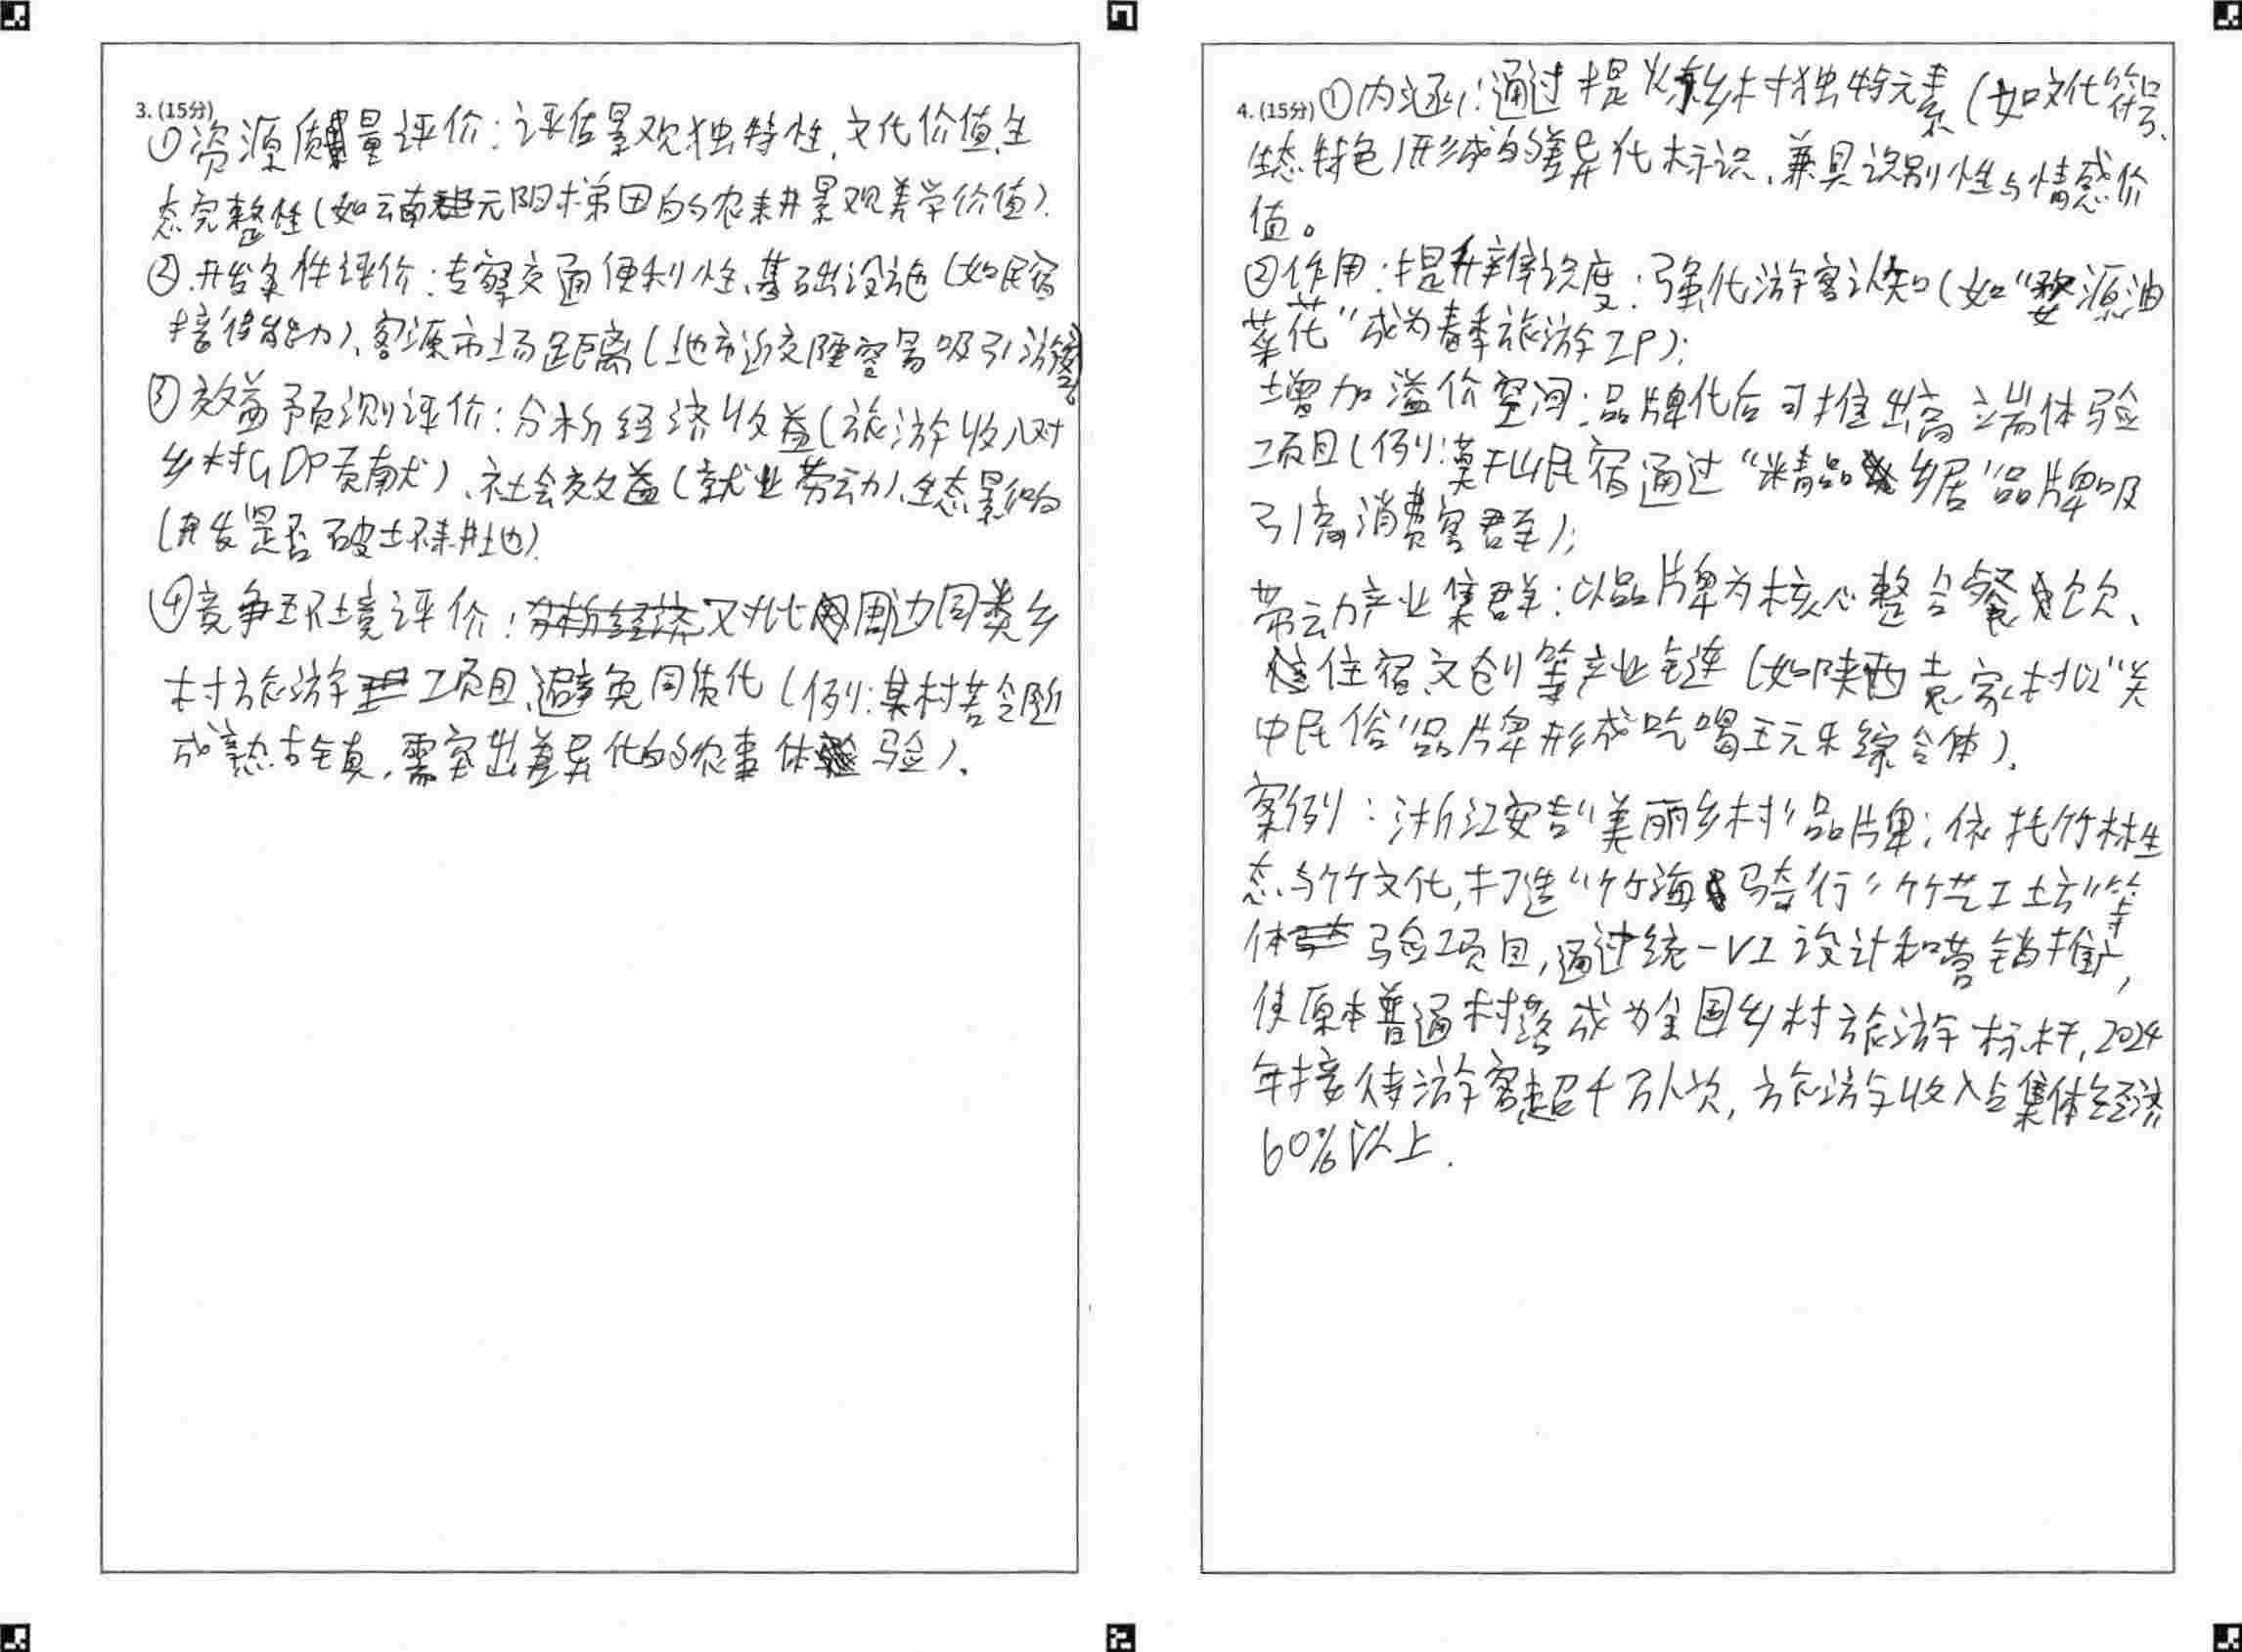 3. (15分)
①资源质量评价：评估景观独特性、文化价值、生
态完整性（如云南元阳梯田的农耕景观美学价值）.
②开发条件评价：考察交通便利性、基础设施（如民宿
接待能力）、客源市场距离（城市近郊随容易吸引游客）
③效益预测评价：分析经济收益（旅游收入对
乡村GDP贡献）、社会效益（就业带动）、生态影响
（开发是否破坏耕地）.
④竞争环境评价：对比周边同类乡
村旅游项目,避免同质化（例：某村若含
成熟古镇，需突出差异化的农事体验）.
4. (15分) ①内涵：通过提炼乡村独特元素（如文化符号、
生态特色）形成的差异化标识，兼具识别性与情感价
值。
②作用：提升辨识度：强化游客认知（如“婺源油
菜花”成为春季旅游IP）；
增加溢价空间：品牌化后可推出高端体验
项目（例：莫干山民宿通过“精品乡居”品牌吸
引高消费客群）；
带动产业集群：以品牌为核心整合餐饮、
住宿、文创等产业链（如陕西袁家村以“关
中民俗”品牌形成吃喝玩乐综合体）.
案例：浙江安吉“美丽乡村”品牌；依托竹林生
态与竹文化,打造“竹海骑行”“竹艺工坊”等
体验项目,通过统一VI设计和营销推广,
使原本普通村落成为全国乡村旅游标杆, 2024
年接待游客超千万人次, 旅游收入占集体经济
60%以上.